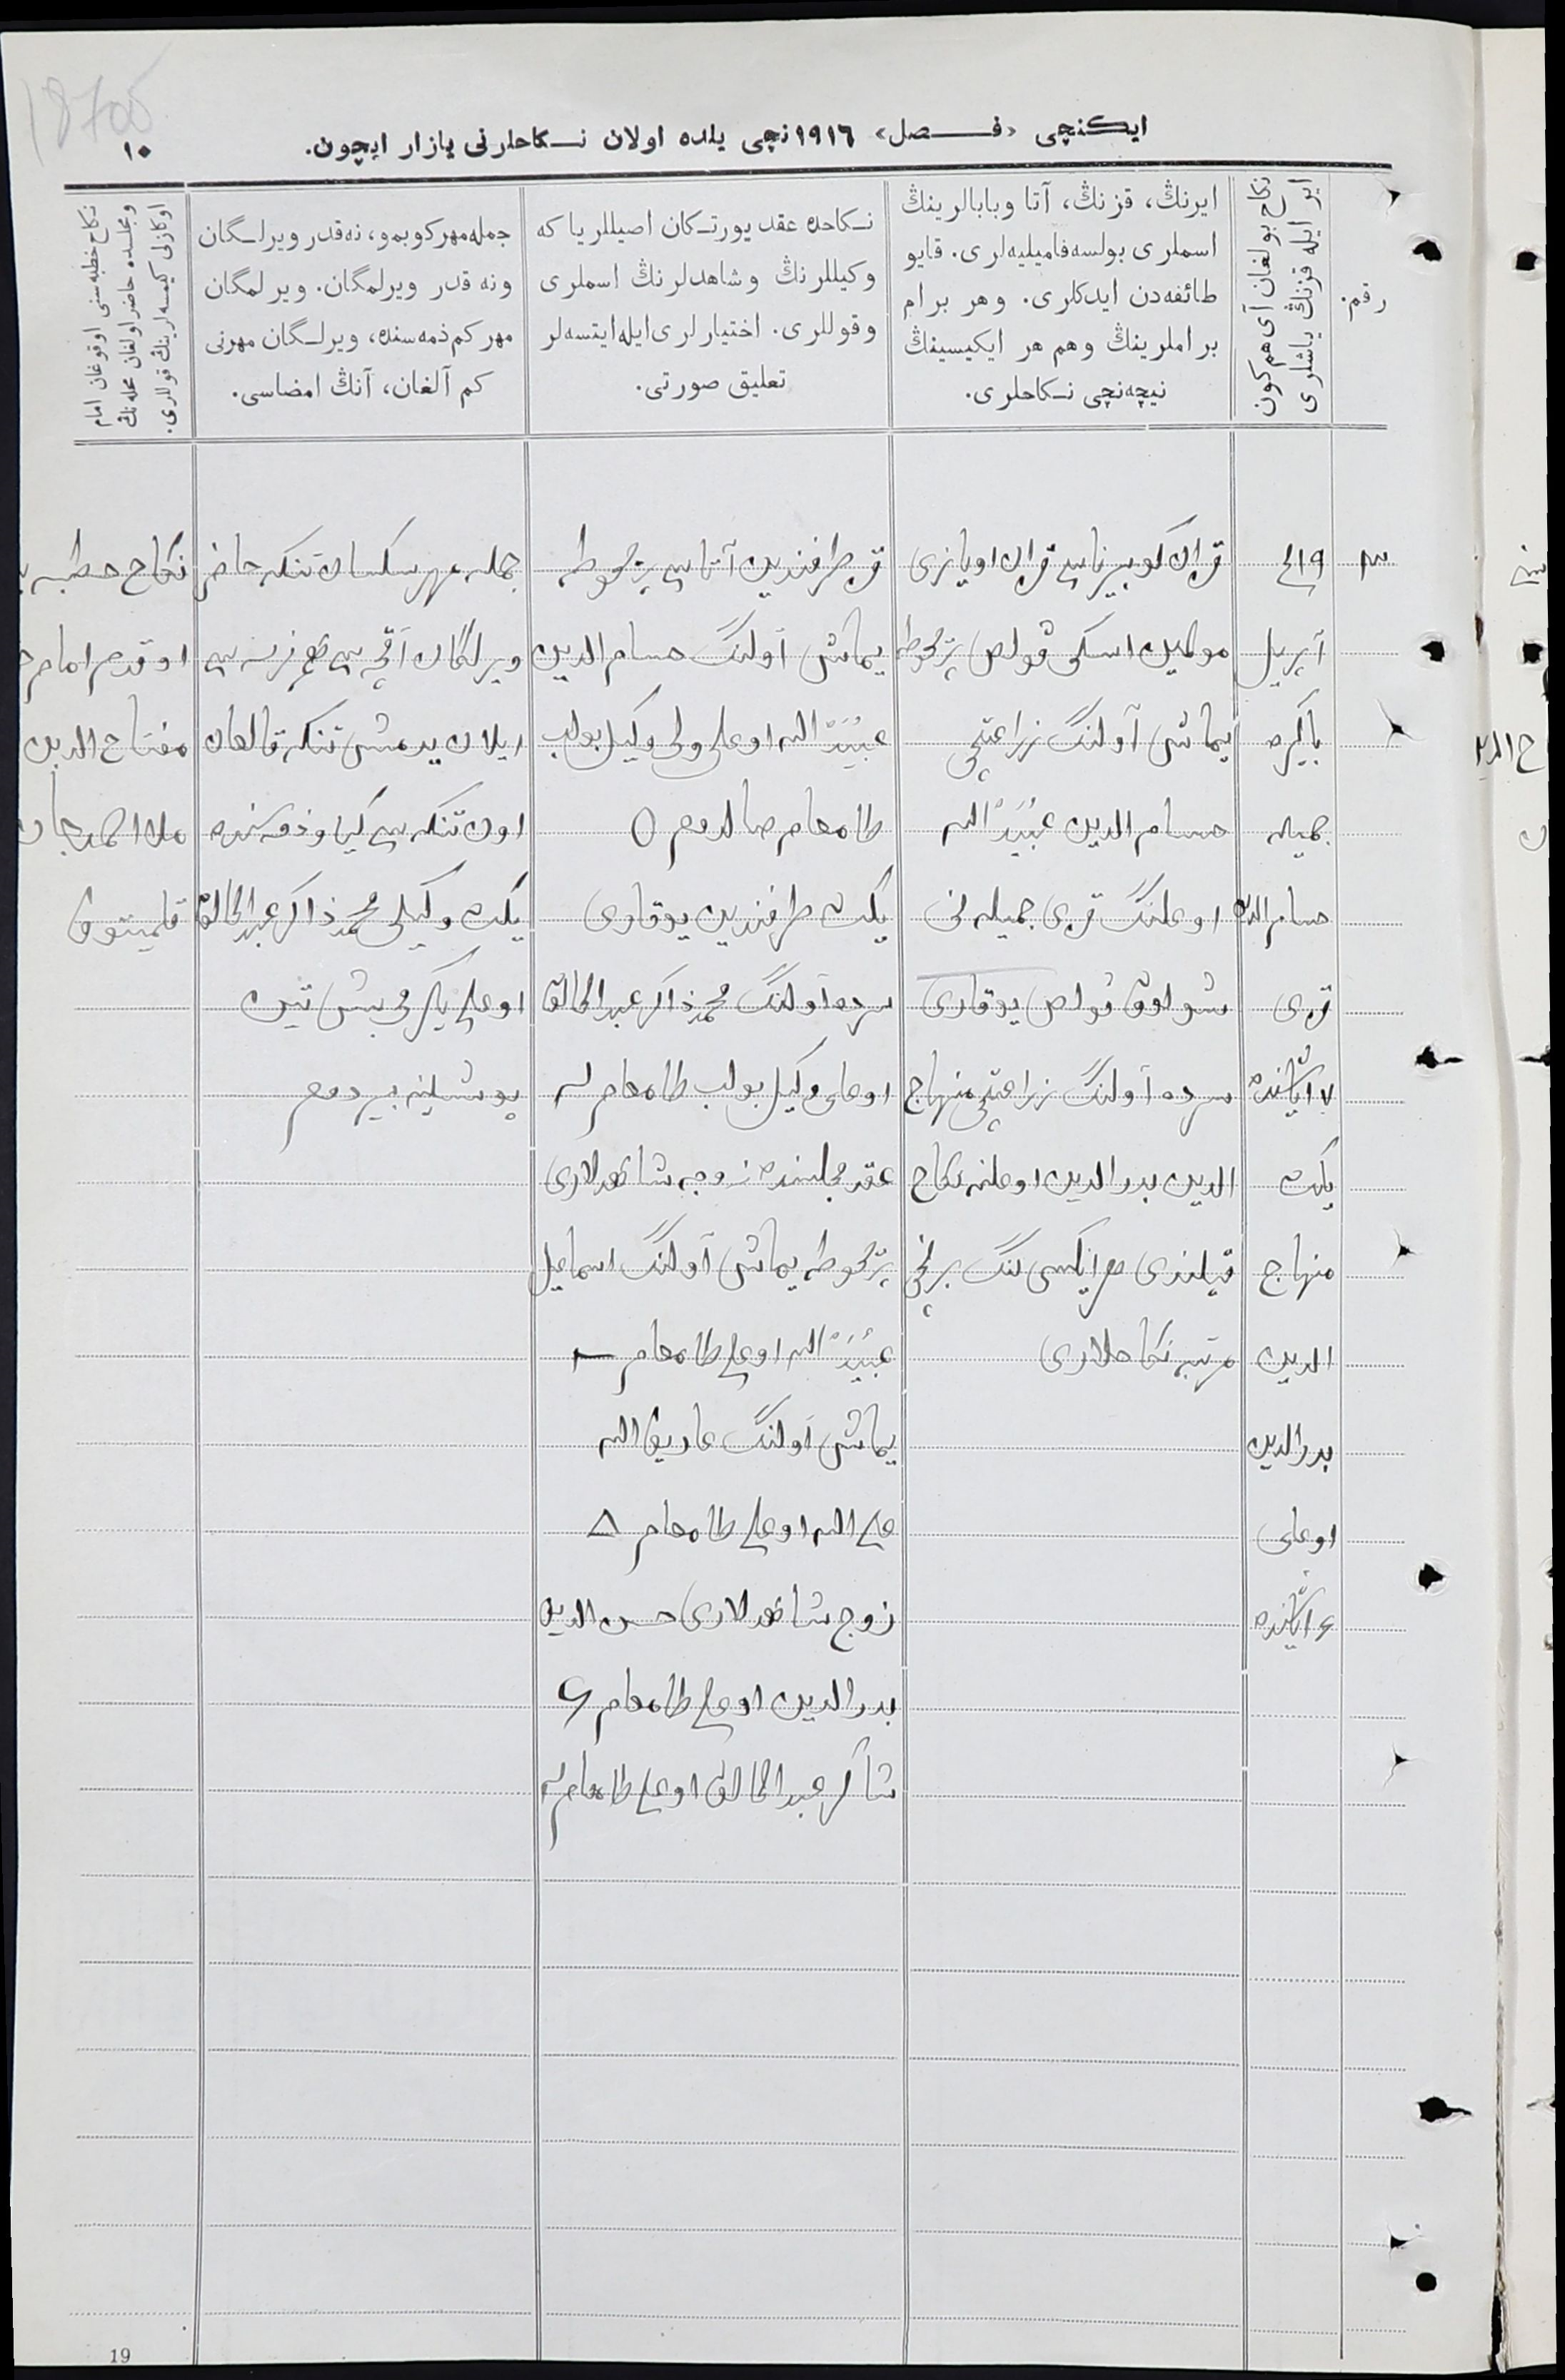 18705
ایکنچی «فصل» ۱۹۱٦نچی یلده اولان نکاحلرنی یازار ایچون.
۱۰
رقم.
ایر ایله قزنڭ یاشلری
نکاح بولغان آی هم کون
ایرنڭ، قزنڭ، آتا وبابالرینڭ
اسملری بولسه فامیلیه‌لری. قایو
طائفه‌دن ایدکلری. وهر برام
براملرینڭ وهم هر ایکیسینڭ
نیچه‌نچی نکاحلری.
نکاحده عقد یورتکان اصیللر یا که
وکیللرنڭ وشاهدلرنڭ اسملری
وقوللری. اختیارلری ایله ایتسه‌لر
تعلیق صورتی.
جمله مهر کوبمو، نه‌قدر ویرلگان
ونه قدر ویرلمگان. ویرلمگان
مهر کم ذمه‌سنده، ویرلگان مهرنی
کم آلغان، آنڭ امضاسی.
نکاح خطبه‌سنی اوقوغان امام
ومجلسده حاضر اولغان محله‌نڭ
اوکازلی کیمسه‌لرینڭ قوللری.
۳
آپریل
باکره
جمیله
حسام الدین
قزی
۱۷ یاشنده
یکت
منهاج
الدین
بدرالدین
اوغلی
یاشنده
قزان اویازی
اسکی
یماش آولنگ زراعتچی
حسام الدین عُبَیْدُ الله
اوغلنگ قزی جمیله نی
یوقاری
سرده آولنگ زراعتچی منهاج
الدین بدرالدین اوغلنه نکاح
قیلندی هر ایکسی ننگ برنچی
مرتبه نکاحلاری
قز طرفندین آتاسی
یماش آولنگ حسام الدین
عُبَیْدُ الله اوغلی ولی وکیل بولب
طامغام صالدوم 0
یکت طرفندین یوقاری
سرده آولنگ محمد ذاکر عبدالخالق
اوغلی وکیل بولب طامغام
عقد مجلسنده زوجه شاهدلاری
یماش آولنگ اسماعیل
عُبَیْدُ الله اوغلی طامغام
یماش آولنگ
الله اوغلی طامغام
زوج شاهدلاری حسن الدین
بدرالدین اوغلی طامغام
شاکر عبدالخالق اوغلی طامغام
جمله مهر سکسان تنکه حاضر
ویرلگان آقچه سی
ایلان یدمش تنکه قالغان
اون تنکه سی کیاو ذمه سنده
یکت وکیلی محمد ذاکر عبدالخالق
اوغلی یکرمی بیش تین
بیردوم
نکاح خطبه
اوقدم امام
مفتاح الدین
ملا احمدجان
ح الدین
19